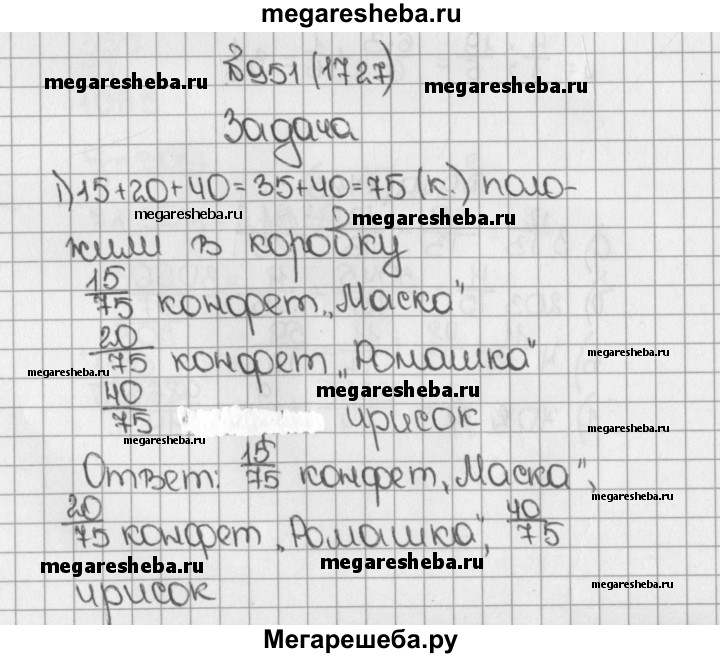 megaresheba.ru
№951 (1727)
megaresheba.ru
megaresheba.ru
Задача
1) 15+20+40=35+40=75 (к.) поло-
megaresheba.ru
megaresheba.ru
жили в коробку
15/75 конфет „Маска"
20/75 конфет „Ромашка"
megaresheba.ru
megaresheba.ru
megaresheba.ru
40/75 ирисок
megaresheba.ru
megaresheba.ru
Ответ: 15/75 конфет „Маска",
20/75 конфет „Ромашка", 40/75
megaresheba.ru
megaresheba.ru
megaresheba.ru
ирисок
Мегарешеба.ру